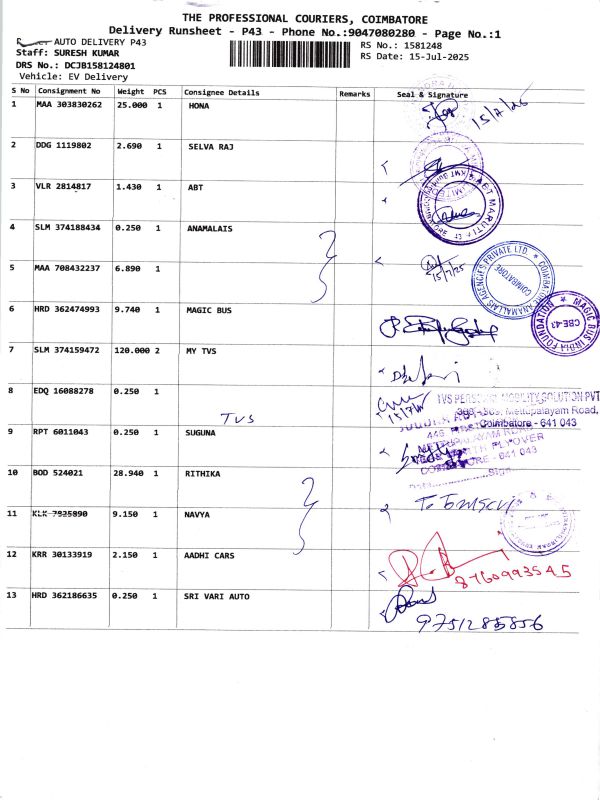 THE PROFESSIONAL COURIERS, COIMBATORE
Delivery Runsheet - P43 - Phone No.:9047080280 - Page No.:1
AUTO DELIVERY P43
Staff: SURESH KUMAR
DRS No.: DCJB158124801
Vehicle: EV Delivery
RS No.: 1581248
RS Date: 15-Jul-2025
S No Consignment No Weight PCS Consignee Details Remarks Seal & Signature
1 MAA 303830262 25.000 1 HONA 15/7/25
2 DDG 1119802 2.690 1 SELVA RAJ
3 VLR 2814817 1.430 1 ABT
ABT MARUTI
4 SLM 374188434 0.250 1 ANAMALAIS
5 MAA 708432237 6.890 1 15/7/25
COIMBATORE ANAMALLAIS AGENCIES PRIVATE LTD.
COIMBATORE
6 HRD 362474993 9.740 1 MAGIC BUS
MAGIC BUS INDIA FOUNDATION
CBE-43
7 SLM 374159472 120.000 2 MY TVS
8 EDQ 16088278 0.250 1 TVS
15/7/25
TVS PERSONAL MOBILITY SOLUTION PVT
Mettupalayam Road,
Coimbatore - 641 043
9 RPT 6011043 0.250 1 SUGUNA
METTUPALAYAM ROAD
NORTH FLYOVER
COIMBATORE - 641 043
10 BOD 524021 28.940 1 RITHIKA
11 KLK 7925890 9.150 1 NAVYA
12 KRR 30133919 2.150 1 AADHI CARS
8760993545
13 HRD 362186635 0.250 1 SRI VARI AUTO
9751285856